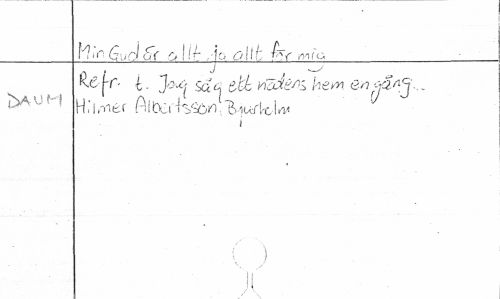 Min Gud är allt, ja allt för mig
Refr. t. Jag såg ett nådens hem en gång...
DAUM
Hilmer Albertsson, Bjurholm